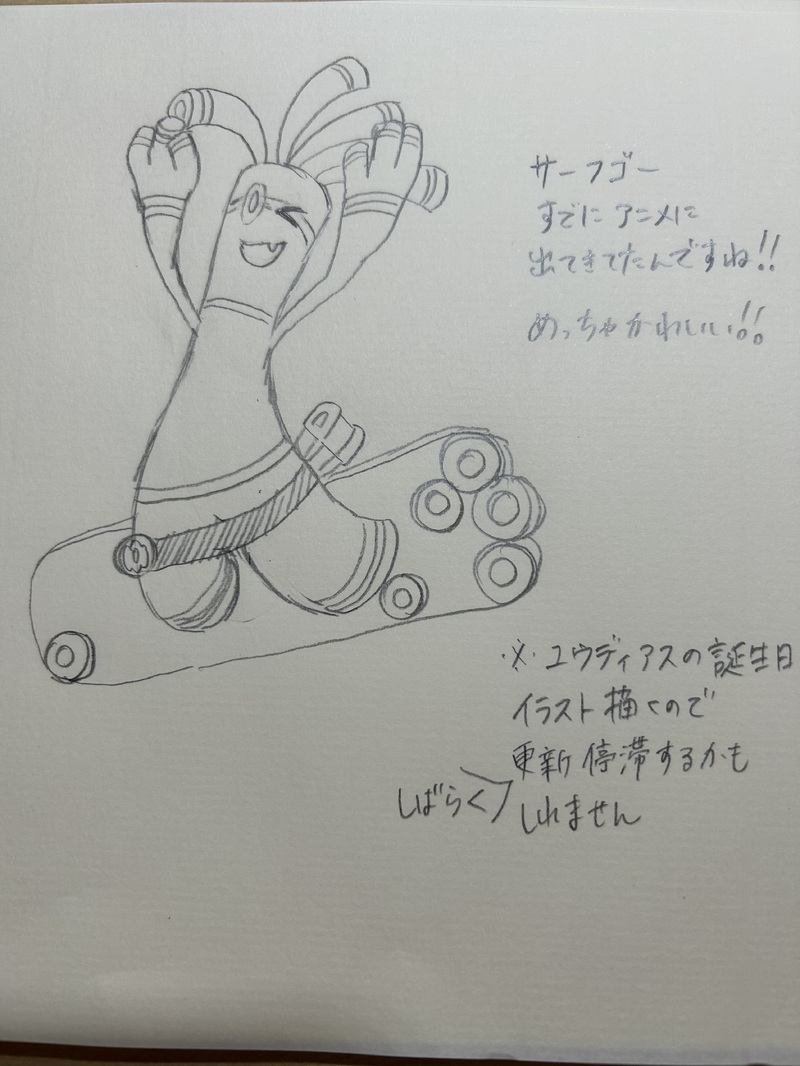 サーフゴー
すでにアニメに
出てきてたんですね!!
めっちゃかわいい!!
※ユウディアスの誕生日
イラスト描くので
しばらく
更新停滞するかも
しれません